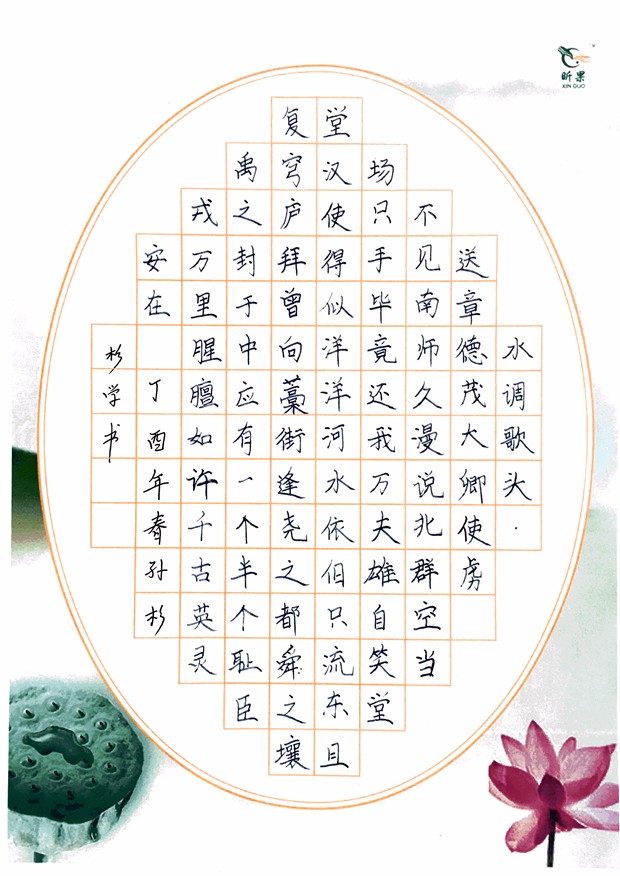 昕果
XIN GUO
水调歌头·
送章德茂大卿使虏
不见南师久漫说北群空当
场只手毕竟还我万夫雄自笑堂
堂汉使得似洋洋河水依伯只流东且
复穹庐拜曾向藁街逢尧之都舜之壤
禹之封于中应有一个半个耻臣
戎万里腥膻如许千古英灵
安在 丁酉年春孙杉
杉学书